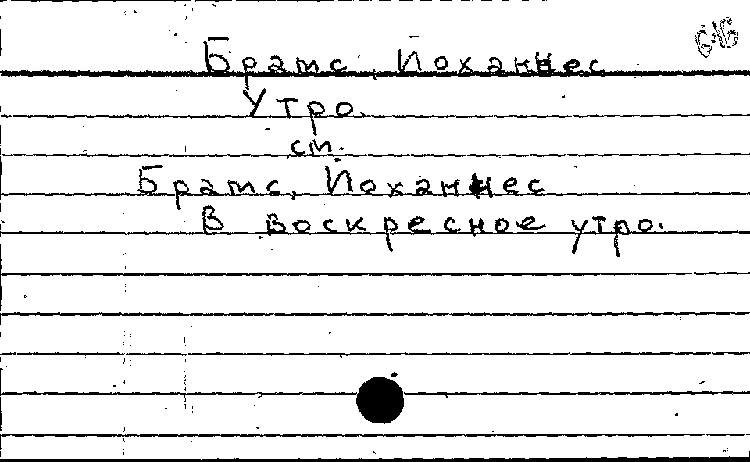 Брамс, Йоханнес
Утро.
см.
Брамс, Йоханнес
В воскресное утро.